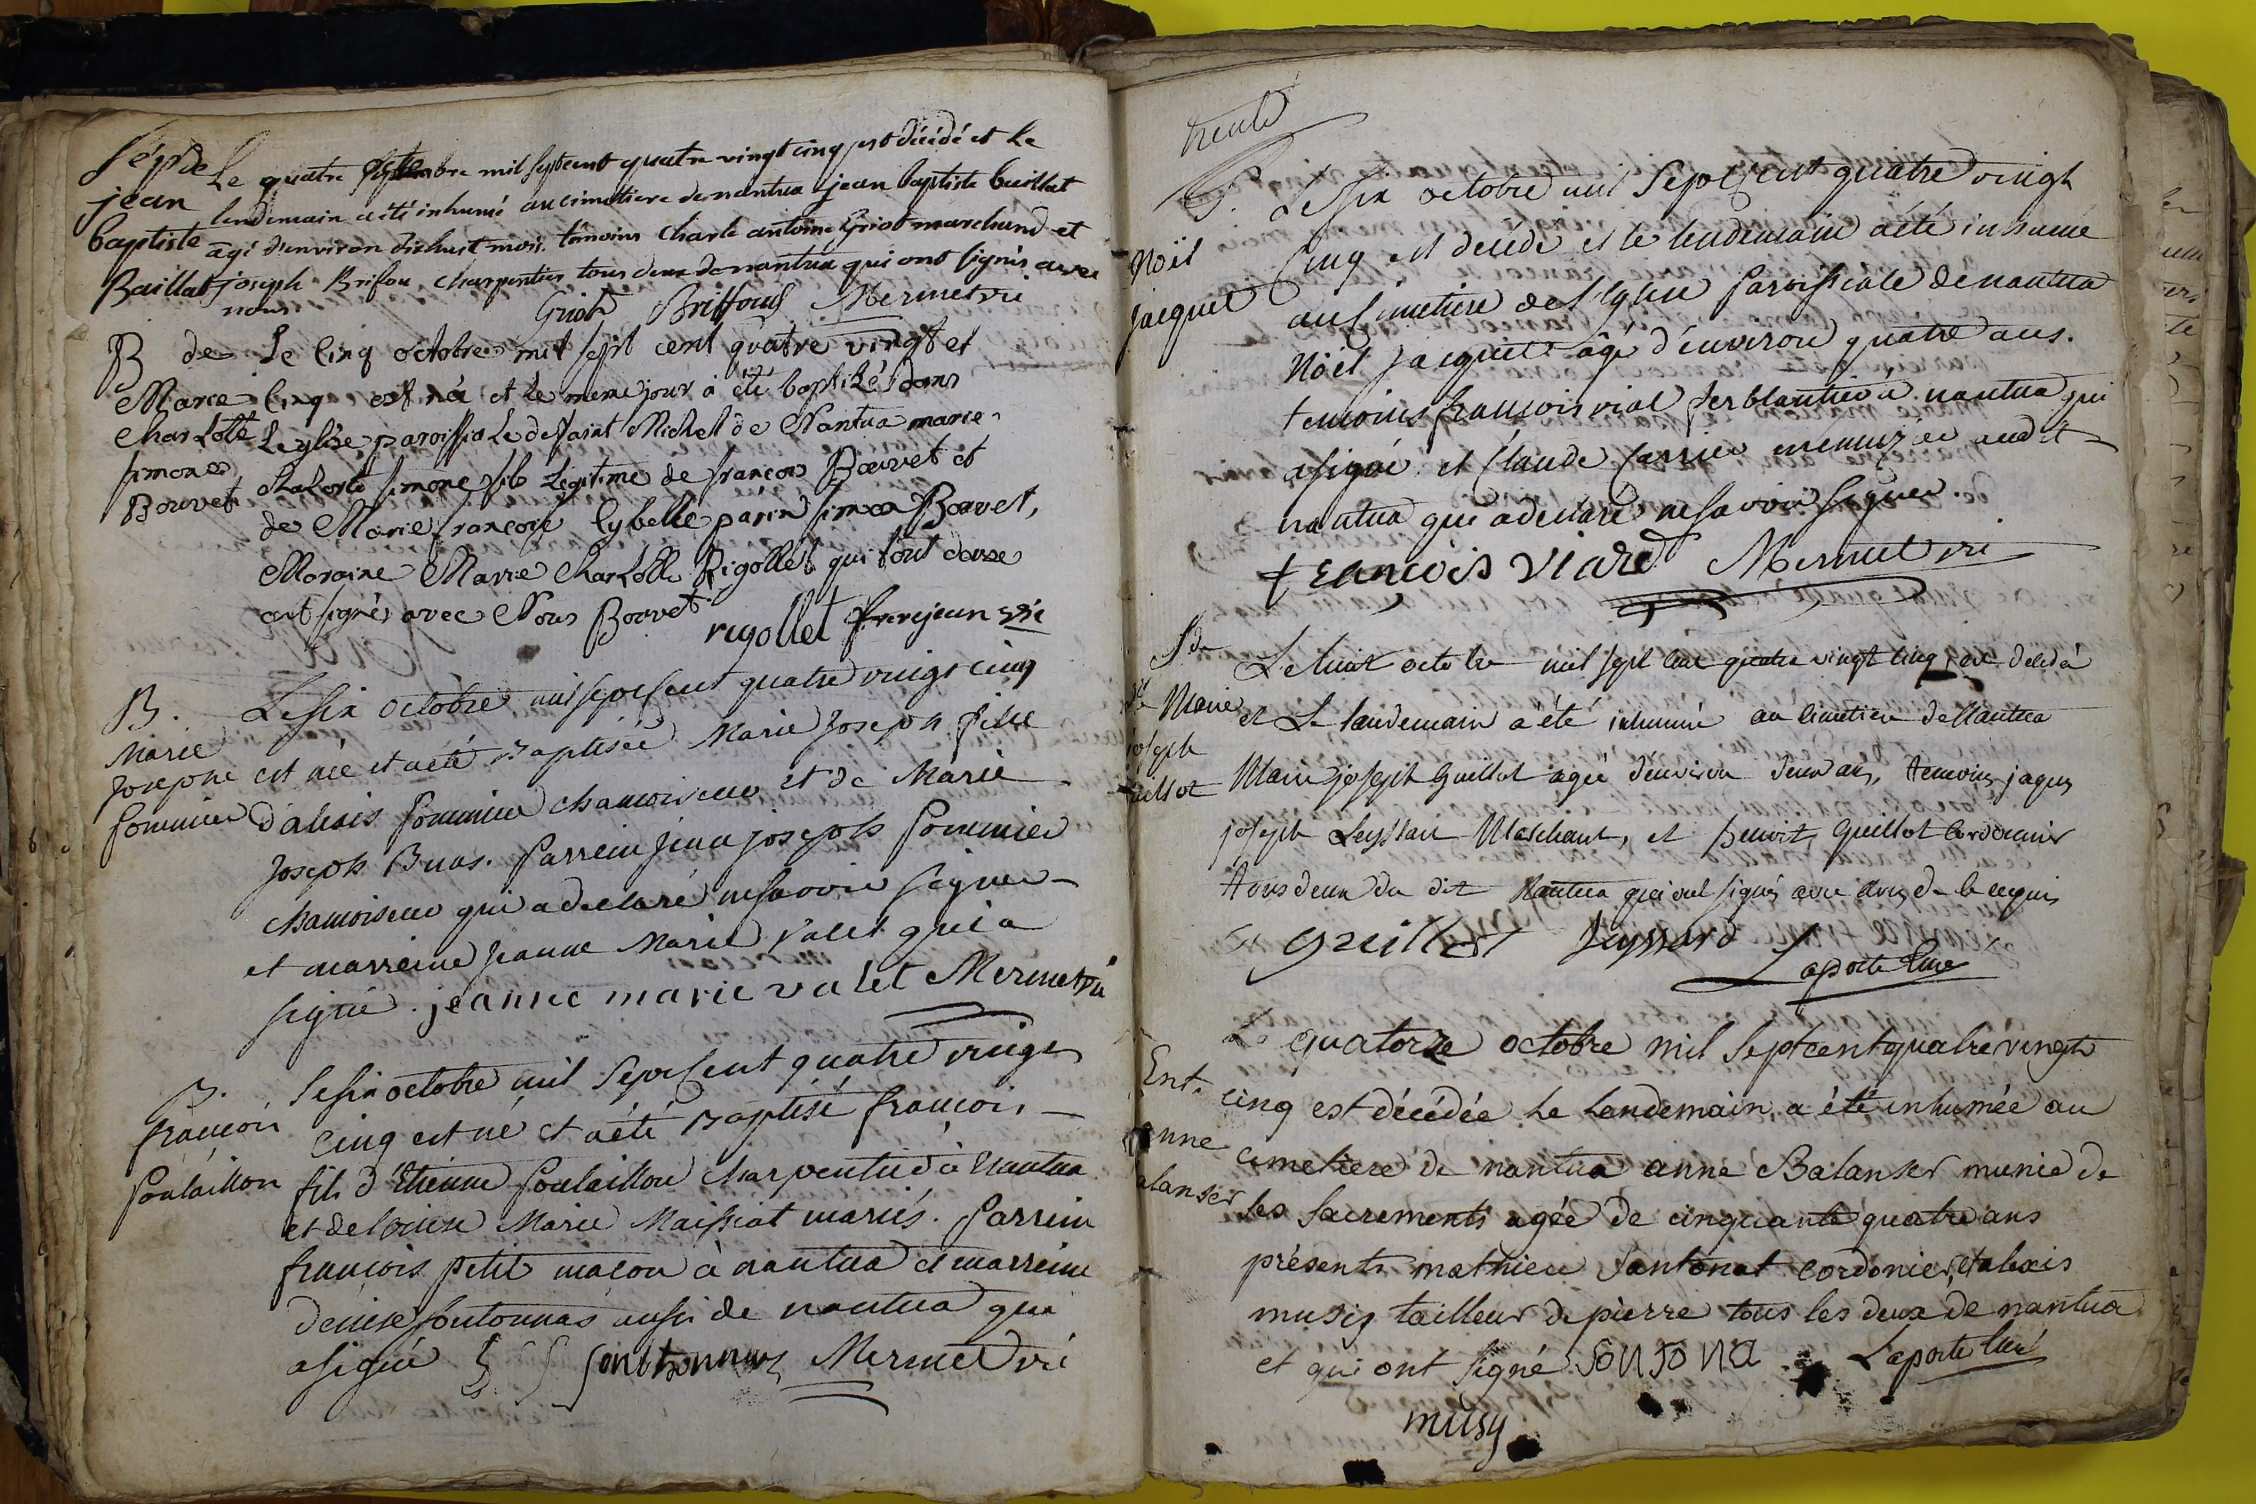 Sép de
jean
baptiste
Baillat
Le quatre octobre mil sept cent quatre vingt cinq est décédé et le
lendemain a été inhumé au cimetiere de nantua jean baptiste baillat
âgé d'environ dix huit mois. témoins Charle antoine Griot marchand et
joseph Brifou charpentier tous deux de nantua qui ont signés avec
nous
Griot Briffoud Mermet vri
B de
Marie
Charlotte
simone
Bouvet
Le Cinq octobre mil sept cent quatre vingt et
Cinq est née et le meme jour à été baptizée dans
Leglise paroissiale de saint Michel de Nantua marie
Charlotte simone fille Legitime de françois Bouvet et
de Marie françoise Cybelle parin simon Bouvet,
Moraine Marie Charlotte Rigollet qui tout deuxe
ont signés avec Nous Bouvet
rigollet frerejean vri
B.
Marie
Josephe
Sommier
Le six octobre mil sept cent quatre vingt cinq
est née et a été Baptisée Marie Joseph fille
d'alexis Sommier chamoiseur et de Marie
Joseph Buas. Parrein jean joseph Sommier
chamoiseur qui a declaré ne savoir signer
et marreine Jeanne Marie valet qui a
signé. jeanne marie valet Mermet vri
B.
françois
Poulaillon
Le six octobre mil Sept Cent quatre vingt
Cinq est né et a été Baptisé françois
fils d'Etienne Poulaillon charpentier à Nantua
et de Marie Maissiat mariés. Parrein
françois petit maçon à nantua et marreine
denise fontonnas aussi de nantua qui
a signé fonthonnas Mermet vri
trente
S.
Noël
Jacquet
Le six octobre mil Sept Cent quatre vingt
Cinq est décédé et le lendemain a été inhumé
au Cimetiere de l'Eglise Paroissiale de nantua
Noël Jacquet âgé d'environ quatre ans.
temoins françois vial ferblantier à nantua qui
a signé et Claude Carrier menuizier audit
nantua qui a déclaré ne savoir signer.
francois viard Mermet vri
S de
Marie
joseph
uillot
Le huit octobre mil sept cent quatre vingt cinq, est décédée
et Le landemain a été inhumée au cimetiere de Nantua
Marie joseph Guillot agée d'environ deux ans, temoins jaques
joseph Leyssard Marchant, et benoit Guillot Cordonnier
tous deux du dit Nantua qui ont signés avec nous de le requis
guillot Leyssard Laporte Curé
Ent.
anne
alanser
Le quatorze octobre mil sept cent quatre vingt
cinq est décédée le Landemain a été inhumée au
cimetiere de nantua anne Balanser munie de
ses Sacrements agée de cinquante quatre ans
présents mathieu Santonat cordonier, et alexis
musy tailleur de pierre tous les deux de nantua
et qui ont signé SONTONA Laporte Curé
musy